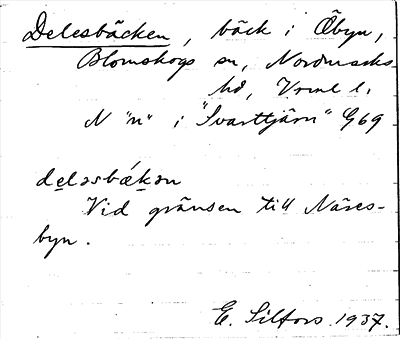 Delesbäcken, bäck i Åbyn,
Blomskogs sn, Nordmarks
hd, Vrml l.
N "n" i "Svarttjärn" G69
deləsbækən
Vid gränsen till Näres-
byn.
E. Silfors 1937.